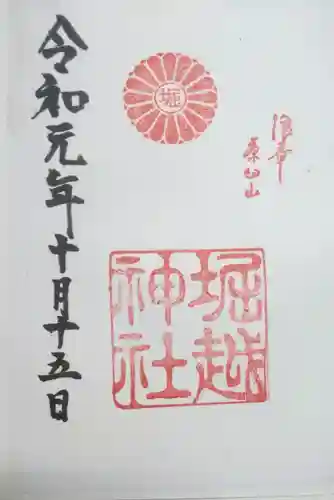 堀
令和元年十月十五日
堀越
神社